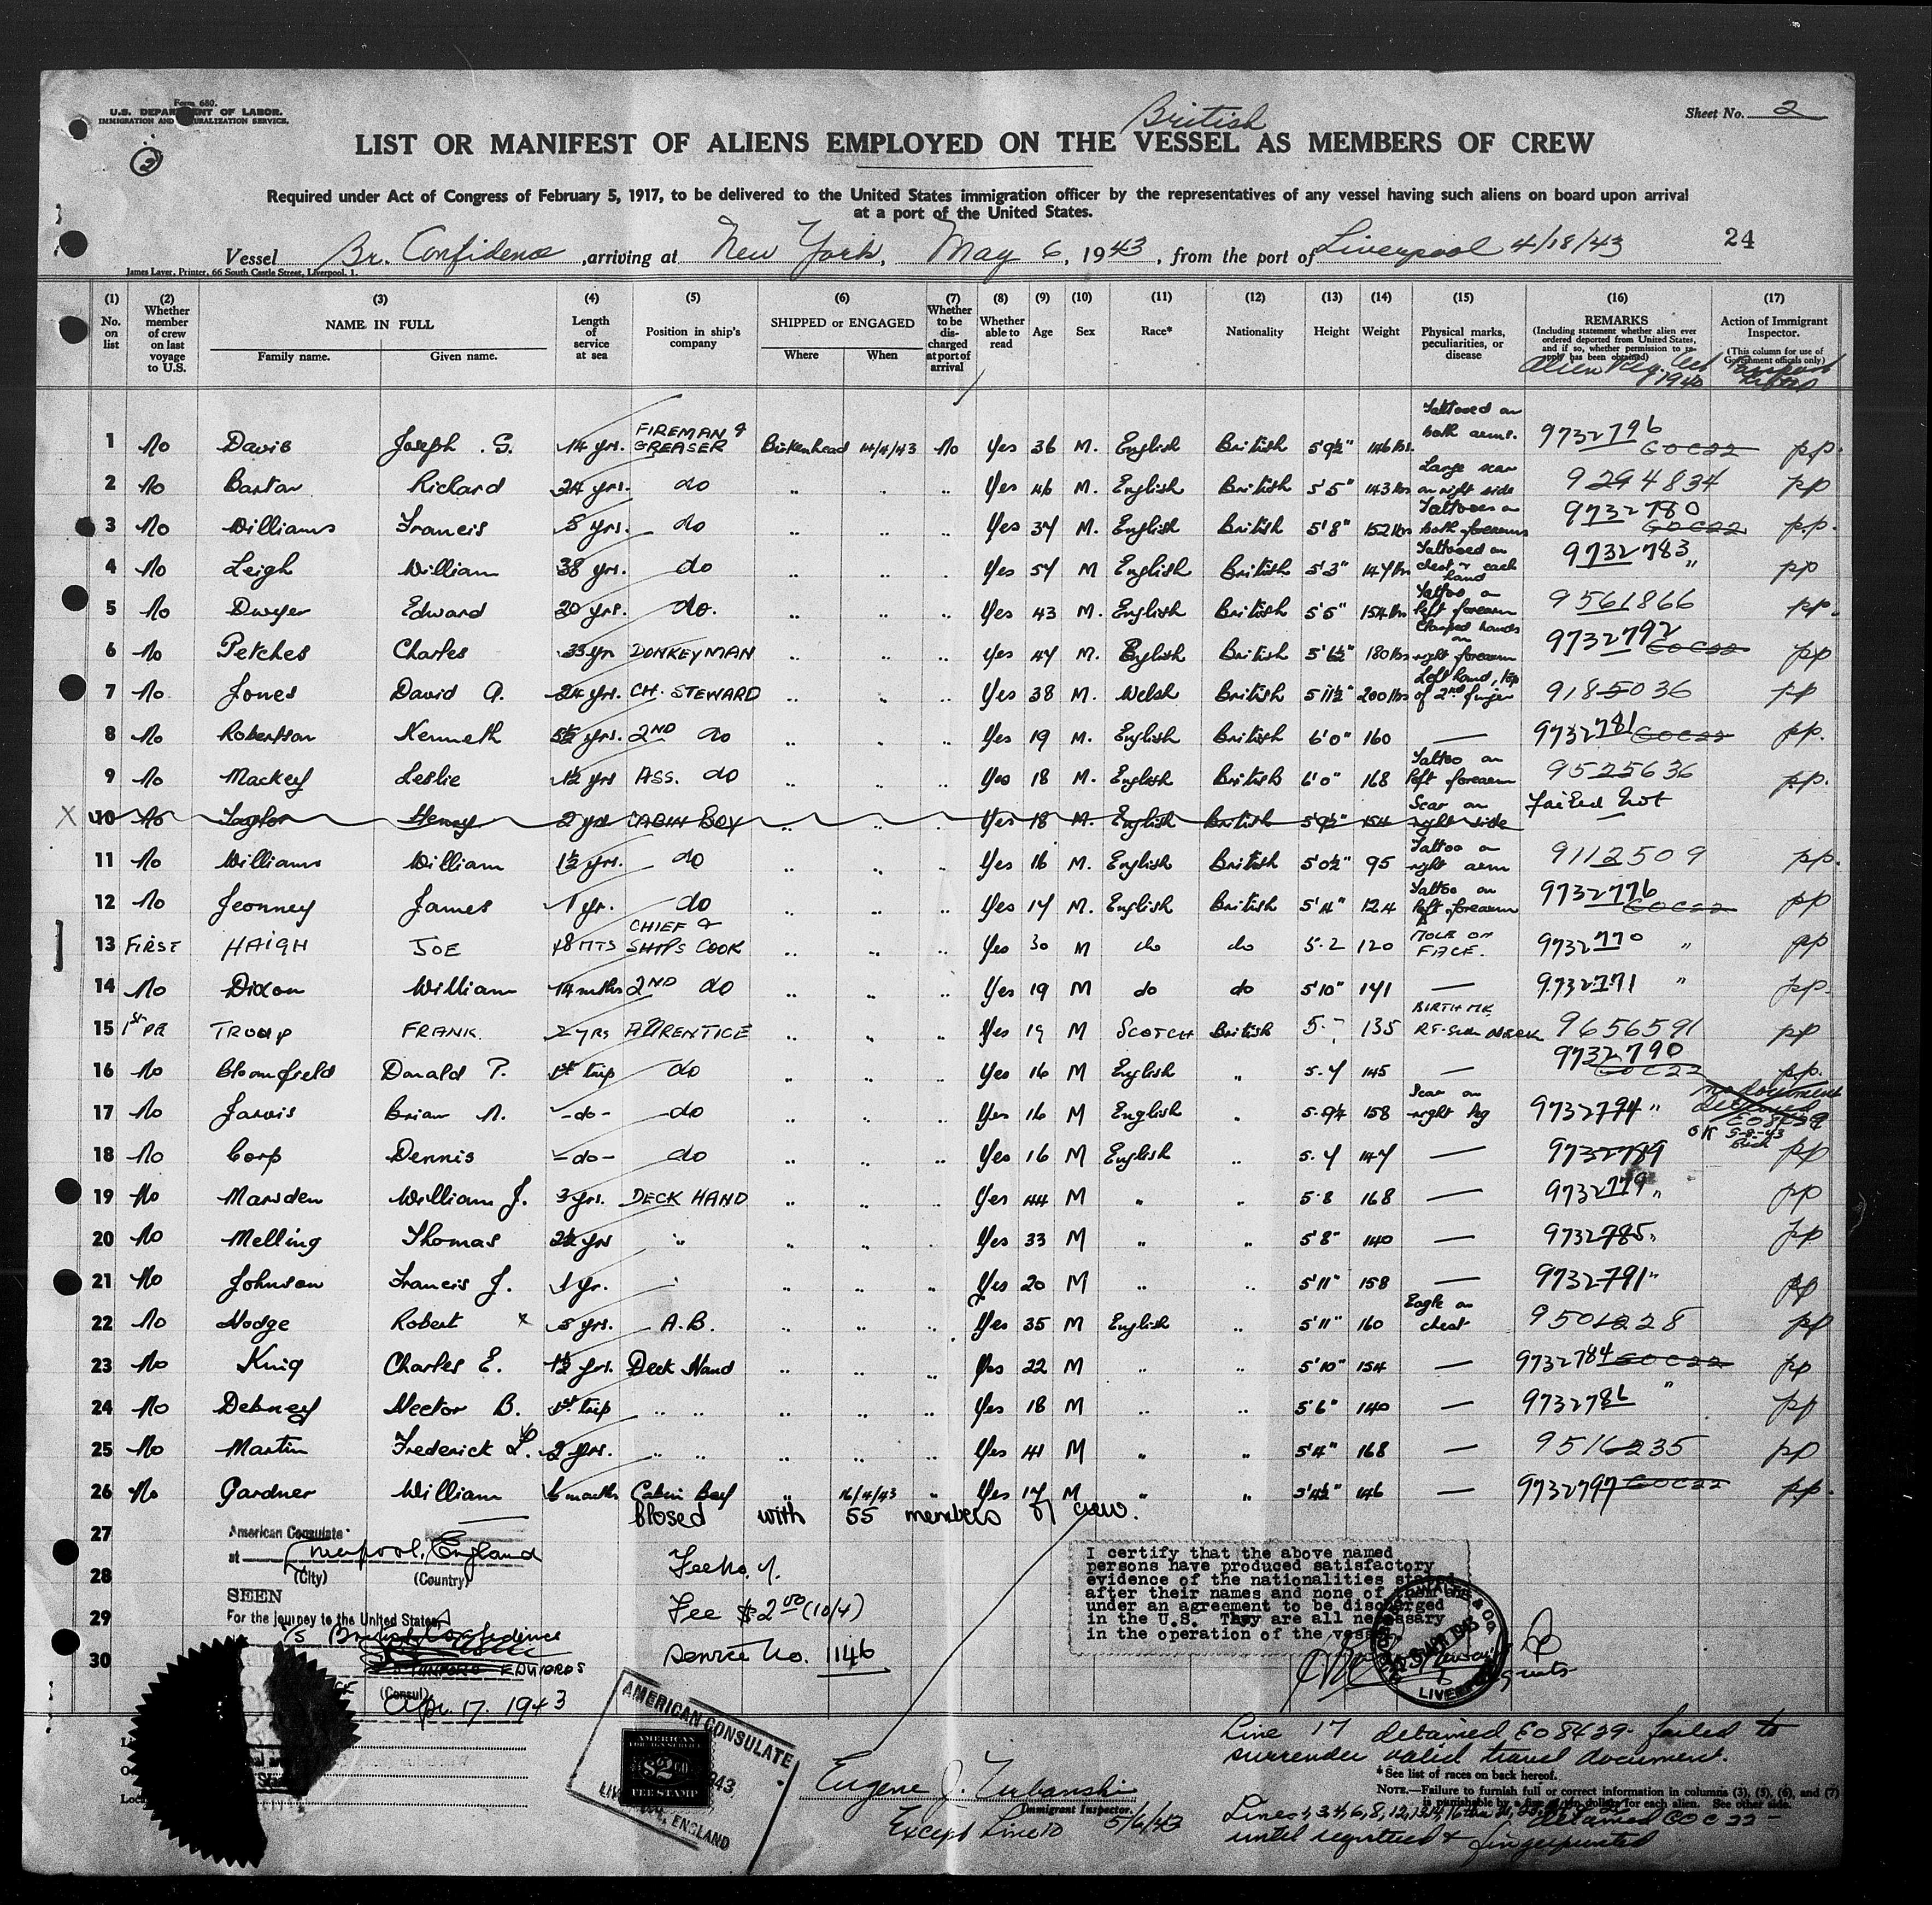 Form 680.
U.S. DEPARTMENT OF LABOR.
IMMIGRATION AND NATURALIZATION SERVICE.
2
Sheet No. 2
British
LIST OR MANIFEST OF ALIENS EMPLOYED ON THE VESSEL AS MEMBERS OF CREW
Required under Act of Congress of February 5, 1917, to be delivered to the United States immigration officer by the representatives of any vessel having such aliens on board upon arrival
at a port of the United States.
24
Vessel Br. Confidence, arriving at New York, May 6, 1943, from the port of Liverpool 4/18/43
James Laver, Printer, 66 South Castle Street, Liverpool, 1.
(1) No. on list (2) Whether member of crew on last voyage to U.S. (3) NAME IN FULL Family name. Given name. (4) Length of service at sea (5) Position in ship's company (6) SHIPPED or ENGAGED Where When (7) Whether to be discharged at port of arrival (8) Whether able to read (9) Age (10) Sex (11) Race* (12) Nationality (13) Height (14) Weight (15) Physical marks, peculiarities, or disease (16) REMARKS (Including statement whether alien ever ordered deported from United States, and if so, whether permission to reapply has been obtained) (17) Action of Immigrant Inspector. (This column for use of Government officials only)
Alien Reg. Act 1940
1 No Davis Joseph G. 14 yr. FIREMAN & GREASER Birkenhead 14/4/43 No Yes 36 M. English British 5'9½" 146 lbs. Tattooed on both arms. 9732796 COC22 pp.
2 No Barton Richard 24 yrs. do " " " Yes 46 M. English British 5'5" 143 lbs Large scar on right side 9294834 pp
3 No Williams Francis 5 yrs. do " " " Yes 37 M. English British 5'8" 152 lbs Tattooes on both forearms 9732780 COC22 p.p.
4 No Leigh William 38 yrs. do " " " Yes 57 M English British 5'3" 147 lbs Tattooed on chest & each hand 9732783 " pp
5 No Dwyer Edward 20 yrs. do. " " " Yes 43 M. English British 5'5" 154 lbs Tattoo on left forearm 9561866 pp.
6 No Petches Charles 33 yr DONKEYMAN " " " Yes 47 M. English British 5'6½" 180 lbs Clasped hands on right forearm 9732792 COC22 pp
7 No. Jones David A. 24 yrs. CH. STEWARD " " " Yes 38 M. Welsh British 5'11½" 200 lbs Left hand, top of 2nd finger 9185036 pp
8 No Robertson Kenneth yrs. 2ND do " " " Yes 19 M. English British 6'0" 160 — 9732781 COC22 pp.
9 No Mackey Leslie 1½ yrs ASS. do " " " Yes 18 M. English British 6'0" 168 Tattoo on left forearm 9525636 pp.
X 10 No Taylor Henry 2 yrs CABIN BOY " " " Yes 18 M. English British 5'9½" 154 Scar on right side Failed Not
11 No Williams William 1½ yrs. do " " " Yes 16 M. English British 5'0½" 95 Tattoo on right arm 9112509 pp.
12 No Jeonney James 1 yr. do " " " Yes 17 M. English British 5'4" 124 Tattoo on left forearm 9732776 COC22 pp
13 FIRST HAIGH JOE 18 MTS CHIEF & SHIPS COOK " " " Yes 30 M do do 5.2 120 MOLE ON FACE. 9732770 " pp
14 No Dixon William 14 mths 2ND do " " " Yes 19 M do do 5'10" 141 — 9732771 " pp.
15 1st TROUP FRANK. 2 YRS APPRENTICE " " " Yes 19 M SCOTCH British 5.7 135 BIRTH MK RT. SIDE NECK 9656591 pp
16 No Bloomfield Donald P. 1st trip do " " " Yes 16 M English " 5.7 145 — 9732790 COC22 pp.
17 No Jarvis Brian N. -do- do " " " Yes 16 M English " 5.9¼ 158 Scar on right leg 9732794 " no document detained OK 5-8-43
18 No Corp Dennis -do- do " " " Yes 16 M English " 5.7 147 — 9732789 pp
19 No Marsden William J. 3 yrs. DECK HAND " " " Yes 44 M " " 5.8 168 — 9732779 " pp
20 No Melling Thomas 2½ yrs " " " " Yes 33 M " " 5'8" 140 — 9732785 " pp
21 No Johnson Francis J. 1 yr. " " " " Yes 20 M " " 5'11" 158 — 9732791 " pp
22 No Hodge Robert x 5 yrs. A.B. " " " Yes 35 M English " 5'11" 160 Eagle on chest 9501228 pp
23 No King Charles E. 1½ yrs. Deck Hand " " " Yes 22 M " " 5'10" 154 — 9732784 COC22 pp
24 No Debney Hector B. 1st trip " " " " " Yes 18 M " " 5'6" 140 — 9732786 " pp
25 No Martin Frederick L. 2 yrs. " " " " " Yes 41 M " " 5'4" 168 — 9516235 pp
26 No Gardner William 6 months Cabin Boy " 16/4/43 " Yes 17 M " " 5'4½" 146 — 9732797 COC22 pp.
Closed with 55 members of crew.
27
28
29
30
American Consulate
at Liverpool, England
(City) (Country)
SEEN
For the journey to the United States,
British Confidence
EDWARDS
(Consul)
Apr. 17. 1943
Fee No. 7.
Fee $2.00 (10/4)
Service No. 1146
I certify that the above named
persons have produced satisfactory
evidence of the nationalities stated
after their names and none of them are
under an agreement to be discharged
in the U.S. They are all necessary
in the operation of the vessel.
LIVERPOOL
AMERICAN CONSULATE
LIVERPOOL, ENGLAND
AMERICAN
FOREIGN SERVICE
$2.00
FEE STAMP
Eugene J. Urbanski
Immigrant Inspector.
Except Line 10 5/6/43
Line 17 detained 608429 failed to
surrender valid travel document.
* See list of races on back hereof.
NOTE.—Failure to furnish full or correct information in columns (3), (5), (6), and (7)
is punishable by a fine of ten dollars for each alien. See other side.
Lines 1, 3, 4, 6, 8, 12, 13, 14, 16 detained COC22
until registered & fingerprinted